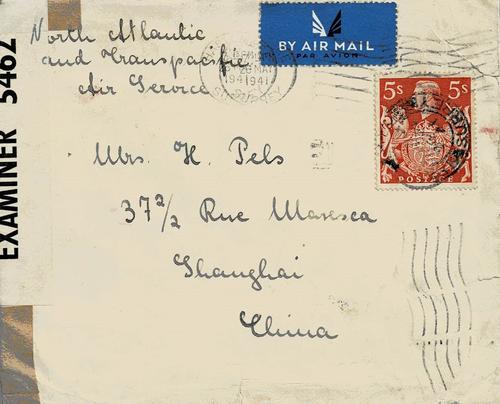 North Atlantic
and Transpacific
Air Service
BY AIR MAIL
PAR AVION
26 MY
1941
SURREY
5s 5s
POSTAGE
EXAMINER 5462
Mrs. H. Pels
372/2 Rue Maresca
Shanghai
China